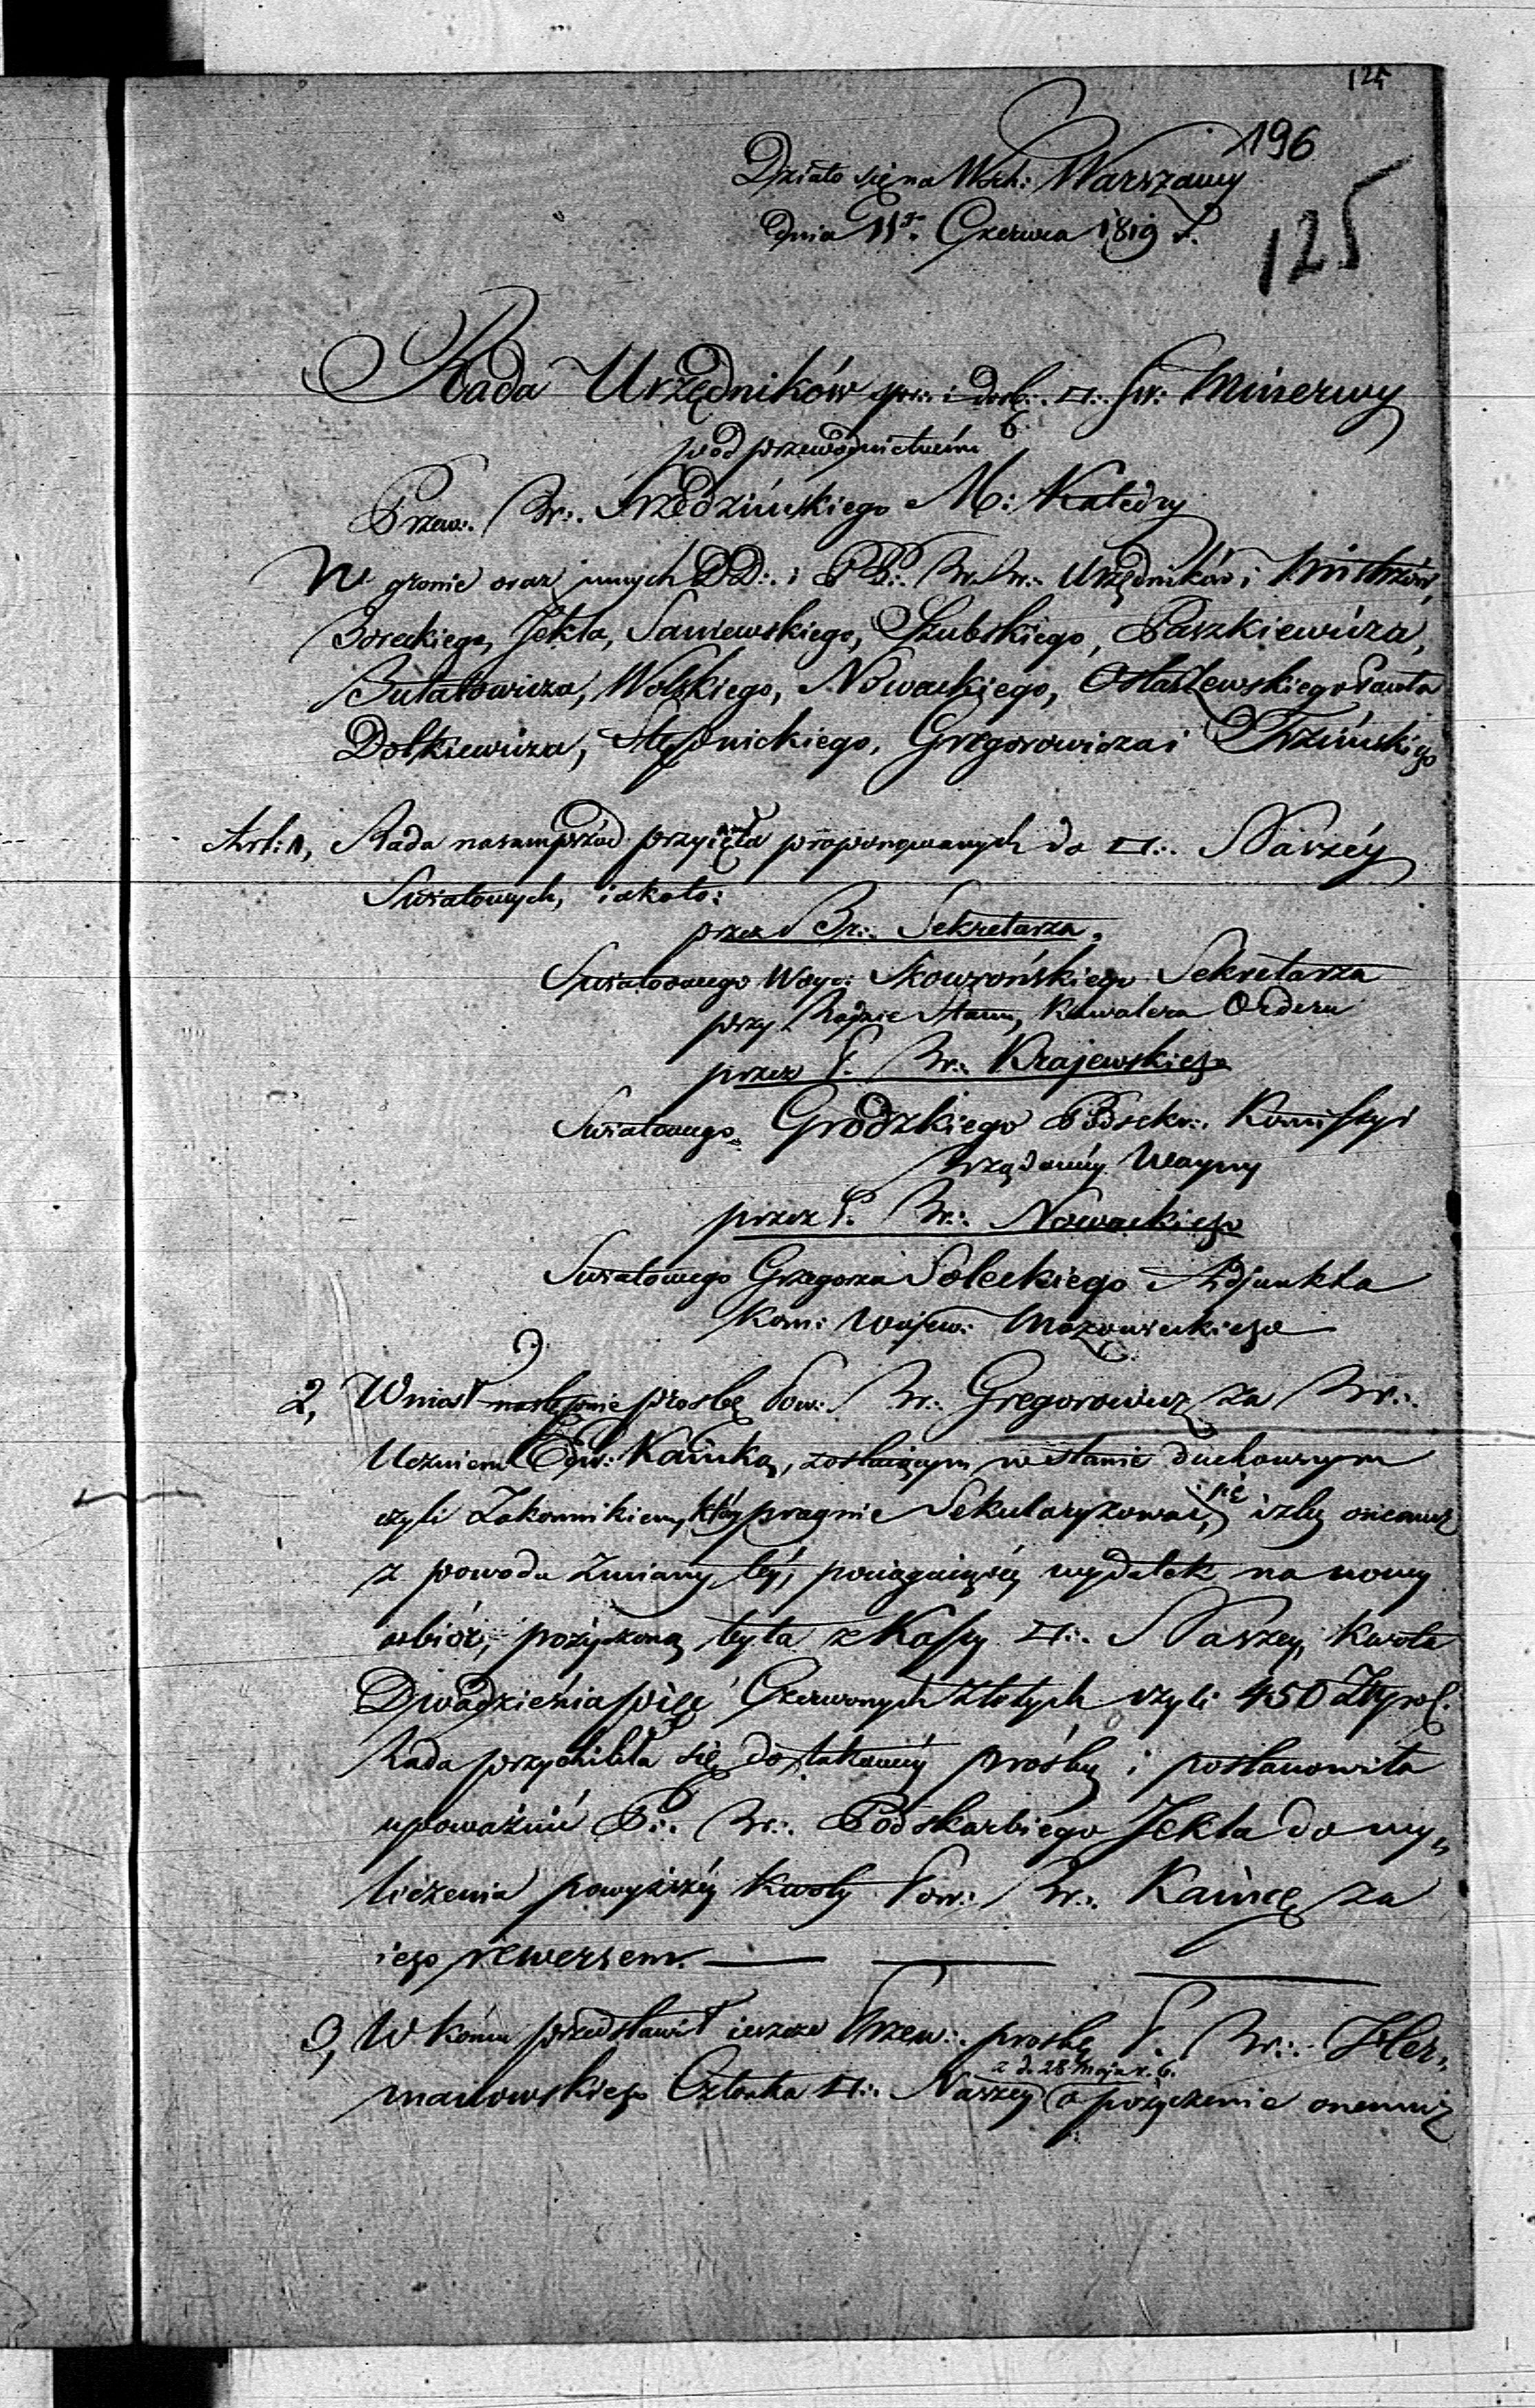 125
196
Działo się na Wsch: Warszawy
125
dnia 11go. Czerwca 1819 r.
Rada Urzędników spr:. i dosk:. □:. św: Minerwy
pod przewodnictwem
Przew:. Br:. Średzińskiego M: Katedry
W gronie oraz innych DD:. i PP:. Br.Br:. Urzędników i Mistrzów,
Boreckiego, Jekla, Saniewskiego, Szubskiego, Paszkiewicza,
Bułatowicza, Wolskiego, Nowackiego, Ostaszewskiego Pawła
Dołkiewicza, Stępnickiego, Gregorowicza i Trzińskiego
Art: 1, Rada nasamprzód przyięła proponowanych do □:. Naszéy
Swiatowych, iakoto:
przez Br:. Sekretarza,
Swiatowego Woyc: Skowrońskiego Sekretarza
przy Radzie Stanu, Kawalera Orderu
przez P. Br:. Krajewskiego
Swiatowego Grodzkiego Podsekr:. Komissyi
Rządowéy Woyny
przez P. Br:. Nowackiego
Swiatowego Grzegorza Soleckiego Adjunkta
Kom: Wojew: Mazowieckiego
2, Wniósł następnie prosbę Pow:. Br:. Gregorowicz za Br:.
Uczniem Edw: Kainką, zostaiącym w stanie duchownym
czyli Zakonnikiem, który pragnie Sekularyzować się, iżby onemuż
z powodu zmiany téy, pociągaiącéy wydatek na nowy
ubiór, pożyczoną była z Kassy □:. Naszey, kwota
Dwadzieścia pięć Czerwonych Złotych czyli 450 Złt pol.
Rada przychiliła się do takowéy prośby i postanowiła
upoważnić P:. Br:. Podskarbiego Jekla do wy„
liczenia powyższéy kwoty Pow:. Br:. Kaince za
iego rewersem.
3, W końcu przedstawił ieszcze Przew:. prosbę P. Br:. Her„
manowskiego Członka □:. Naszey z d. 28 Maja r. b. o pożyczenie onemuż